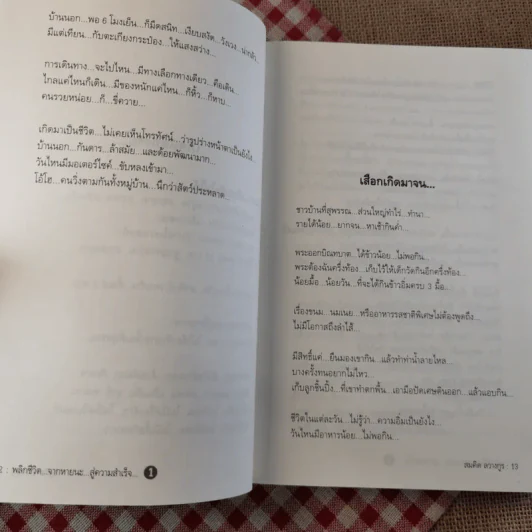 บ้านนอก...พอ 6 โมงเย็น...ก็มืดสนิท...เงียบสงัด...วังเวง...น่ากลัว...
มีแต่เทียน...กับตะเกียงกระป๋อง...ให้แสงสว่าง...
การเดินทาง...จะไปไหน...มีทางเลือกทางเดียว...คือเดิน...
ไกลแค่ไหนก็เดิน...มีของหนักแค่ไหน...ก็หิ้ว...ก็หาบ...
คนรวยหน่อย...ก็...ขี่ควาย...
เกิดมาเป็นชีวิต...ไม่เคยเห็นโทรทัศน์...ว่ารูปร่างหน้าตาเป็นยังไง...
บ้านนอก...กันดาร...ล้าสมัย...และด้อยพัฒนามาก...
วันไหนมีมอเตอร์ไซค์...ขับหลงเข้ามา...
โอ้โฮ...คนวิ่งตามกันทั้งหมู่บ้าน...นึกว่าสัตว์ประหลาด...
2 : พลิกชีวิต...จากหายนะ...สู่ความสำเร็จ... 1
เลือกเกิดมาจน...
ชาวบ้านที่สุพรรณ...ส่วนใหญ่ทำไร่...ทำนา...
รายได้น้อย...ยากจน...หาเช้ากินค่ำ...
พระออกบิณฑบาต...ได้ข้าวน้อย...ไม่พอกิน...
พระต้องฉันครึ่งท้อง...เก็บไว้ให้เด็กวัดกินอีกครึ่งท้อง...
น้อยมื้อ...น้อยวัน...ที่จะได้กินข้าวอิ่มครบ 3 มื้อ...
เรื่องขนม...นมเนย...หรืออาหารรสชาติพิเศษไม่ต้องพูดถึง...
ไม่มีโอกาสถึงลำไส้...
มีสิทธิ์แค่...ยืนมองเขากิน...แล้วทำท่าน้ำลายไหล...
บางครั้งทนอยากไม่ไหว...
เก็บลูกชิ้นปิ้ง...ที่เขาทำตกพื้น...เอามือปัดเศษดินออก...แล้วแอบกิน...
ชีวิตในแต่ละวัน...ไม่รู้ว่า...ความอิ่มเป็นยังไง...
วันไหนมีอาหารน้อย...ไม่พอกิน...
สมคิด ลวางกูร : 13